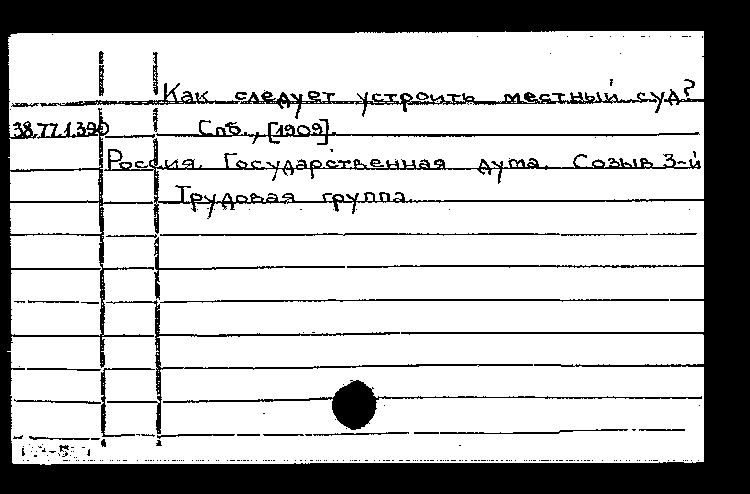 Как следует устроить местный суд?
38.77.1.390 Спб., [1909].
Россия. Государственная дума. Созыв 3-й
Трудовая группа.